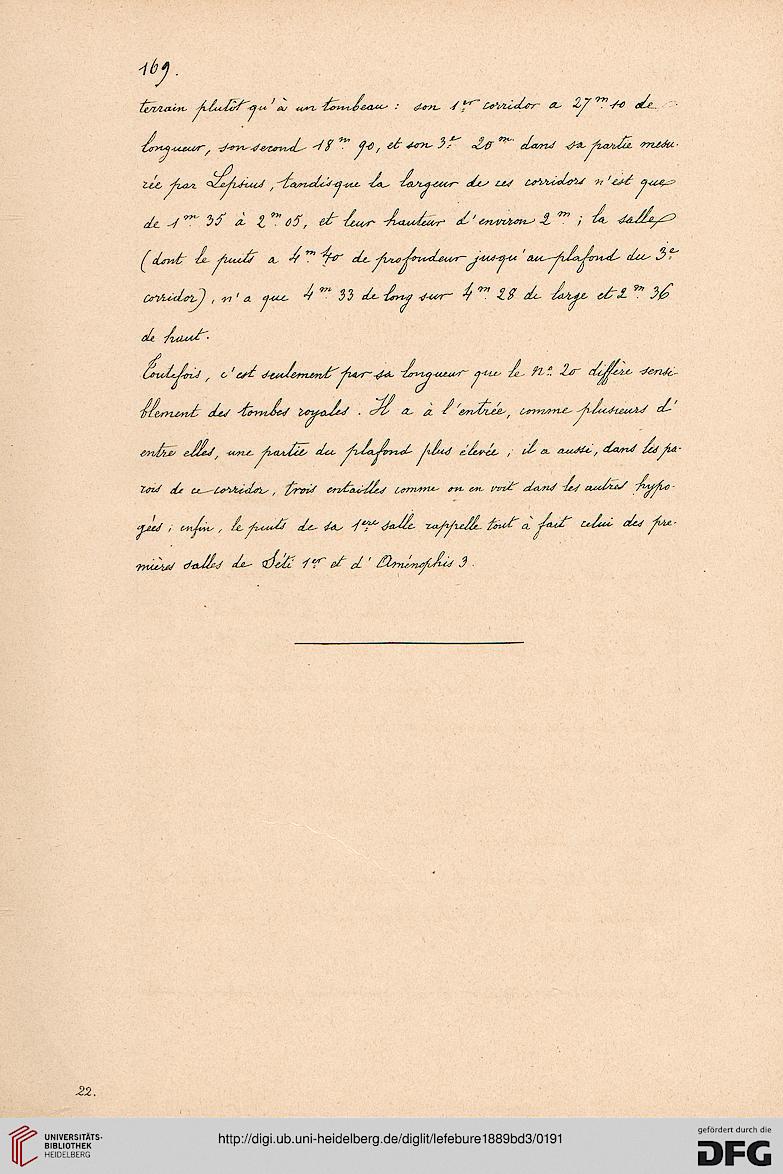 169.
terrain plutôt qu'à un tombeau : son 1er corridor a 27m.10 de
longueur, son second 18m.90, et son 3e. 20m. dans sa partie mesu-
rée par Lepsius, tandis que la largeur de ces corridors n'est que
de 1m.35 à 2m.05, et leur hauteur d'environ 2m ; la salle
(dont le puits a 4m.40 de profondeur jusqu'au plafond du 3e
corridor), n'a que 4m.33 de long sur 4m.28 de large et 2m.36
de haut.
Toutefois, c'est seulement par sa longueur que le No. 20 diffère sensi-
blement des tombes royales. Il a à l'entrée, comme plusieurs d'
entre elles, une partie du plafond plus élevée ; il a aussi, dans les pa-
rois de ce corridor, trois entailles comme on en voit dans les autres hypo-
gées ; enfin, le puits de sa 1ere salle rappelle tout à fait celui des pre-
mières salles de Séti 1er et d'Aménophis 3.
22.
UNIVERSITÄTS-
BIBLIOTHEK
HEIDELBERG
http://digi.ub.uni-heidelberg.de/diglit/lefebure1889bd3/0191
gefördert durch die
DFG